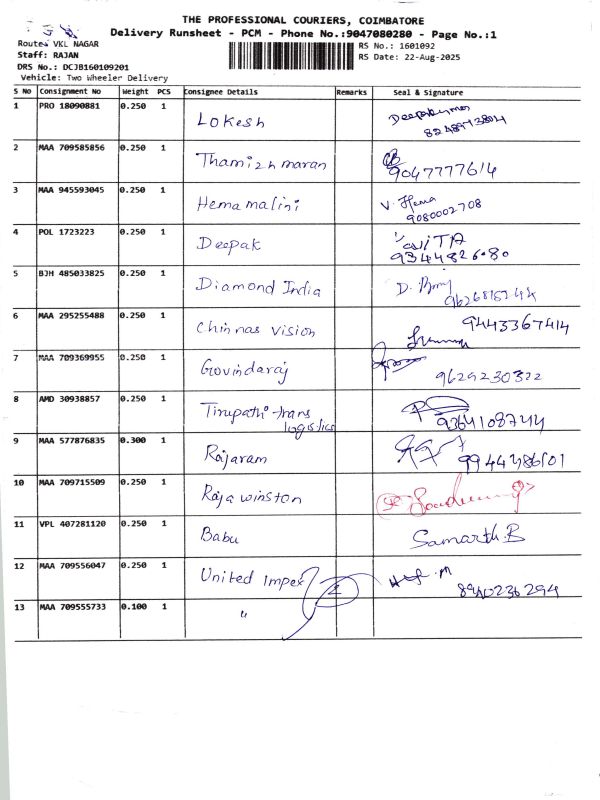 THE PROFESSIONAL COURIERS, COIMBATORE
Delivery Runsheet - PCM - Phone No.:9047080280 - Page No.:1
Route: VKL NAGAR
RS No.: 1601092
Staff: RAJAN
RS Date: 22-Aug-2025
DRS No.: DCJB160109201
Vehicle: Two Wheeler Delivery
S No Consignment No Weight PCS Consignee Details Remarks Seal & Signature
1 PRO 18090881 0.250 1 Lokesh Deepakumar
2 MAA 709585856 0.250 1 Thamizh maran
9047777614
3 MAA 945593045 0.250 1 Hema malini V. Hema
9080002708
4 POL 1723223 0.250 1 Deepak
9344826080
5 BJH 485033825 0.250 1 Diamond India D.
6 MAA 295255488 0.250 1 Chinnas vision 9443367414
7 MAA 709369955 0.250 1 Govindaraj 9629230322
8 AMD 30938857 0.250 1 Tirupathi trans
logistics
9364108744
9 MAA 577876835 0.300 1 Rajaram
10 MAA 709715509 0.250 1 Raja winston
11 VPL 407281120 0.250 1 Babu Samarth.B
12 MAA 709556047 0.250 1 United Impex 2
8940236294
13 MAA 709555733 0.100 1 "